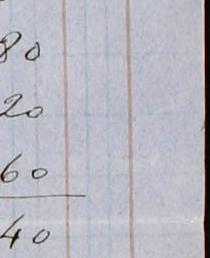 80
20
60
40